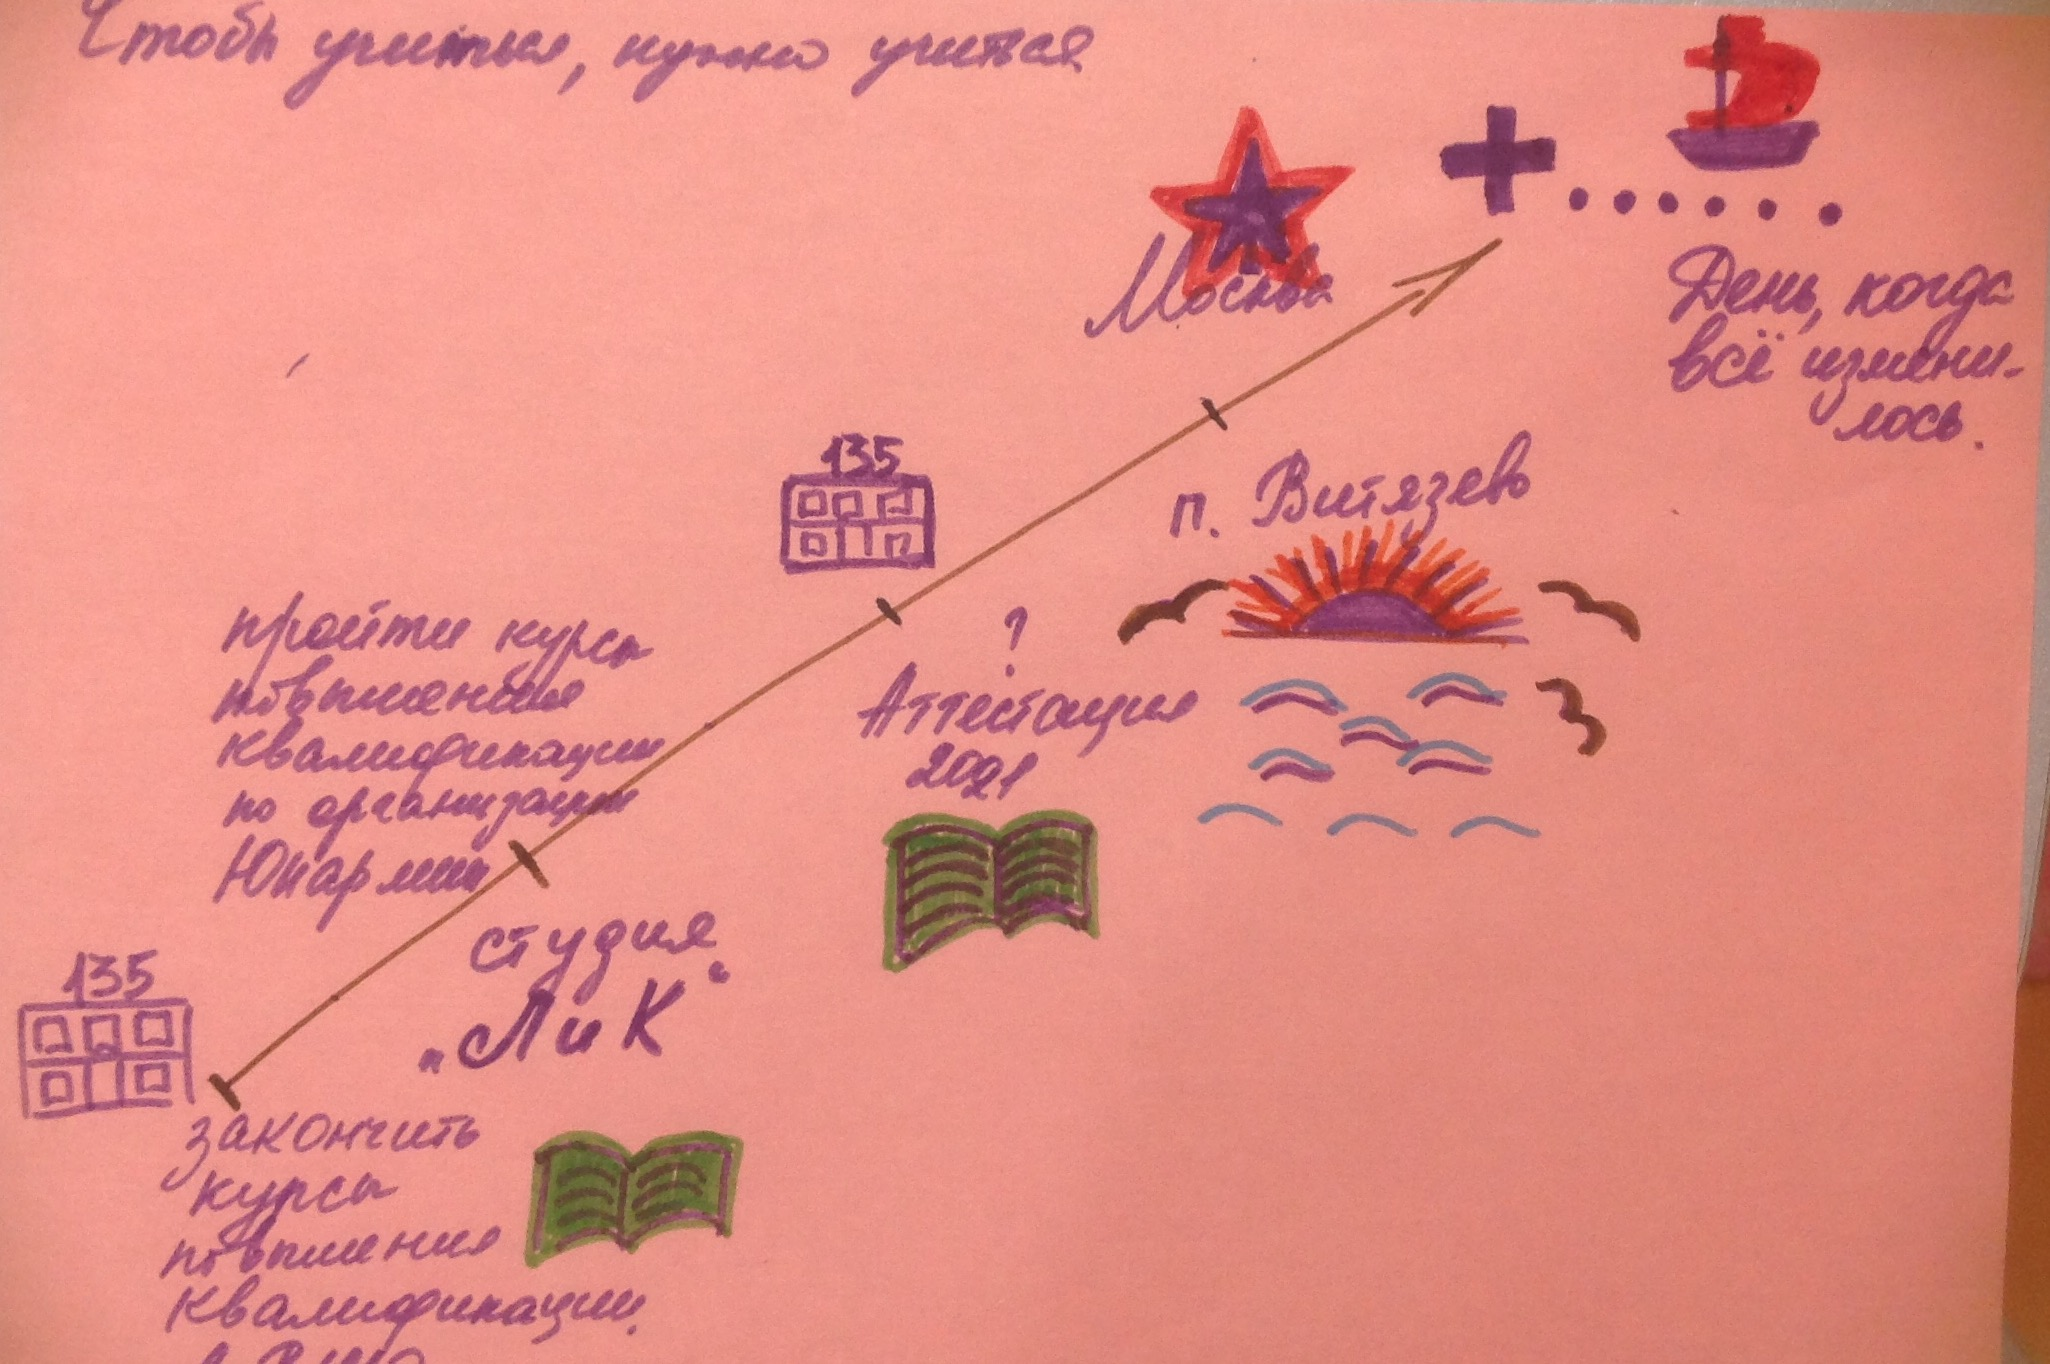 Чтобы учиться, нужно учиться
Москва
День, когда
всё измени-
лось.
135
п. Витязево
пройти курсы
повышения
квалификации
по организации
Юнармии
?
Аттестация
2021
студия
„ЛиК“
135
закончить
курсы
повышения
квалификации.